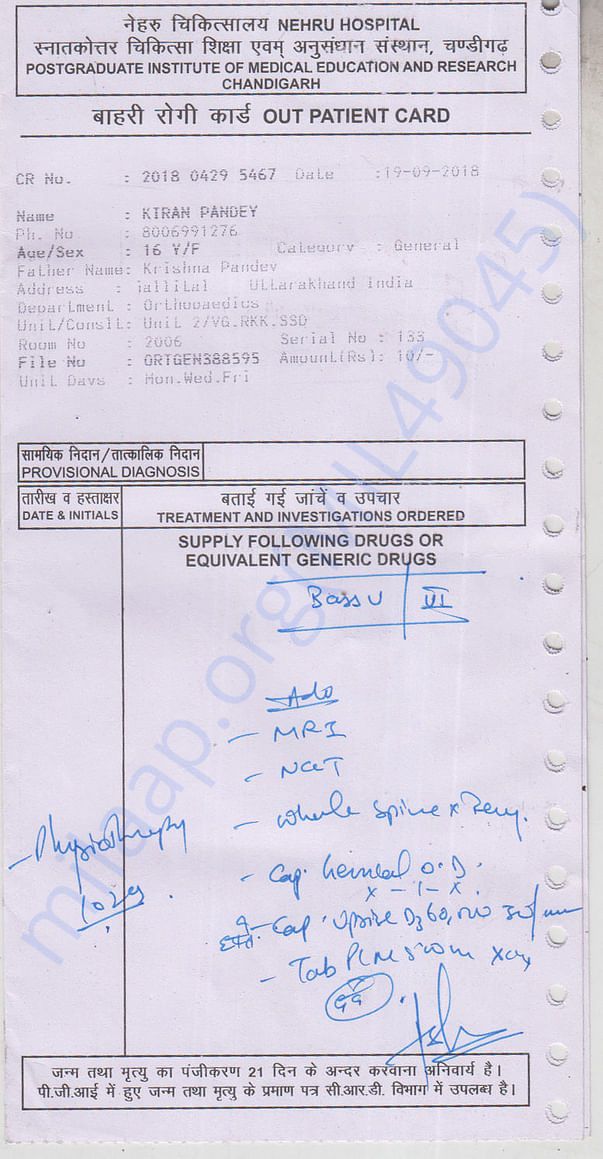 नेहरु चिकित्सालय NEHRU HOSPITAL
स्नातकोत्तर चिकित्सा शिक्षा एवम् अनुसंधान संस्थान, चण्डीगढ़
POSTGRADUATE INSTITUTE OF MEDICAL EDUCATION AND RESEARCH
CHANDIGARH
बाहरी रोगी कार्ड OUT PATIENT CARD
CR No. : 2018 0429 5467 Date :19-09-2018
Name : KIRAN PANDEY
Ph. No : 8006991276
Age/Sex : 16 Y/F Category : General
Father Name: Krishna Pandey
Address : Uttarakhand India
Department : Orthopaedics
Unit/Conslt: Unit 2/VG.RKK.SSD
Room No : 2006 Serial No : 133
File No : ORTGEN388595 Amount(Rs): 10/-
Unit Days : Mon.Wed.Fri
सामयिक निदान/तात्कालिक निदान
PROVISIONAL DIAGNOSIS
तारीख व हस्ताक्षर
DATE & INITIALS
बताई गई जांचें व उपचार
TREATMENT AND INVESTIGATIONS ORDERED
SUPPLY FOLLOWING DRUGS OR
EQUIVALENT GENERIC DRUGS
VI
Adv
- MRI
- NCCT
- Whole Spine x Ray.
- Physiotherapy
- Cap. O.D.
x - 1 - x.
- Cap. Uprise D3 60,000
- Tab PCM
जन्म तथा मृत्यु का पंजीकरण 21 दिन के अन्दर करवाना अनिवार्य है।
पी.जी.आई में हुए जन्म तथा मृत्यु के प्रमाण पत्र सी.आर.डी. विभाग में उपलब्ध है।
milaap.org(MIL49045)